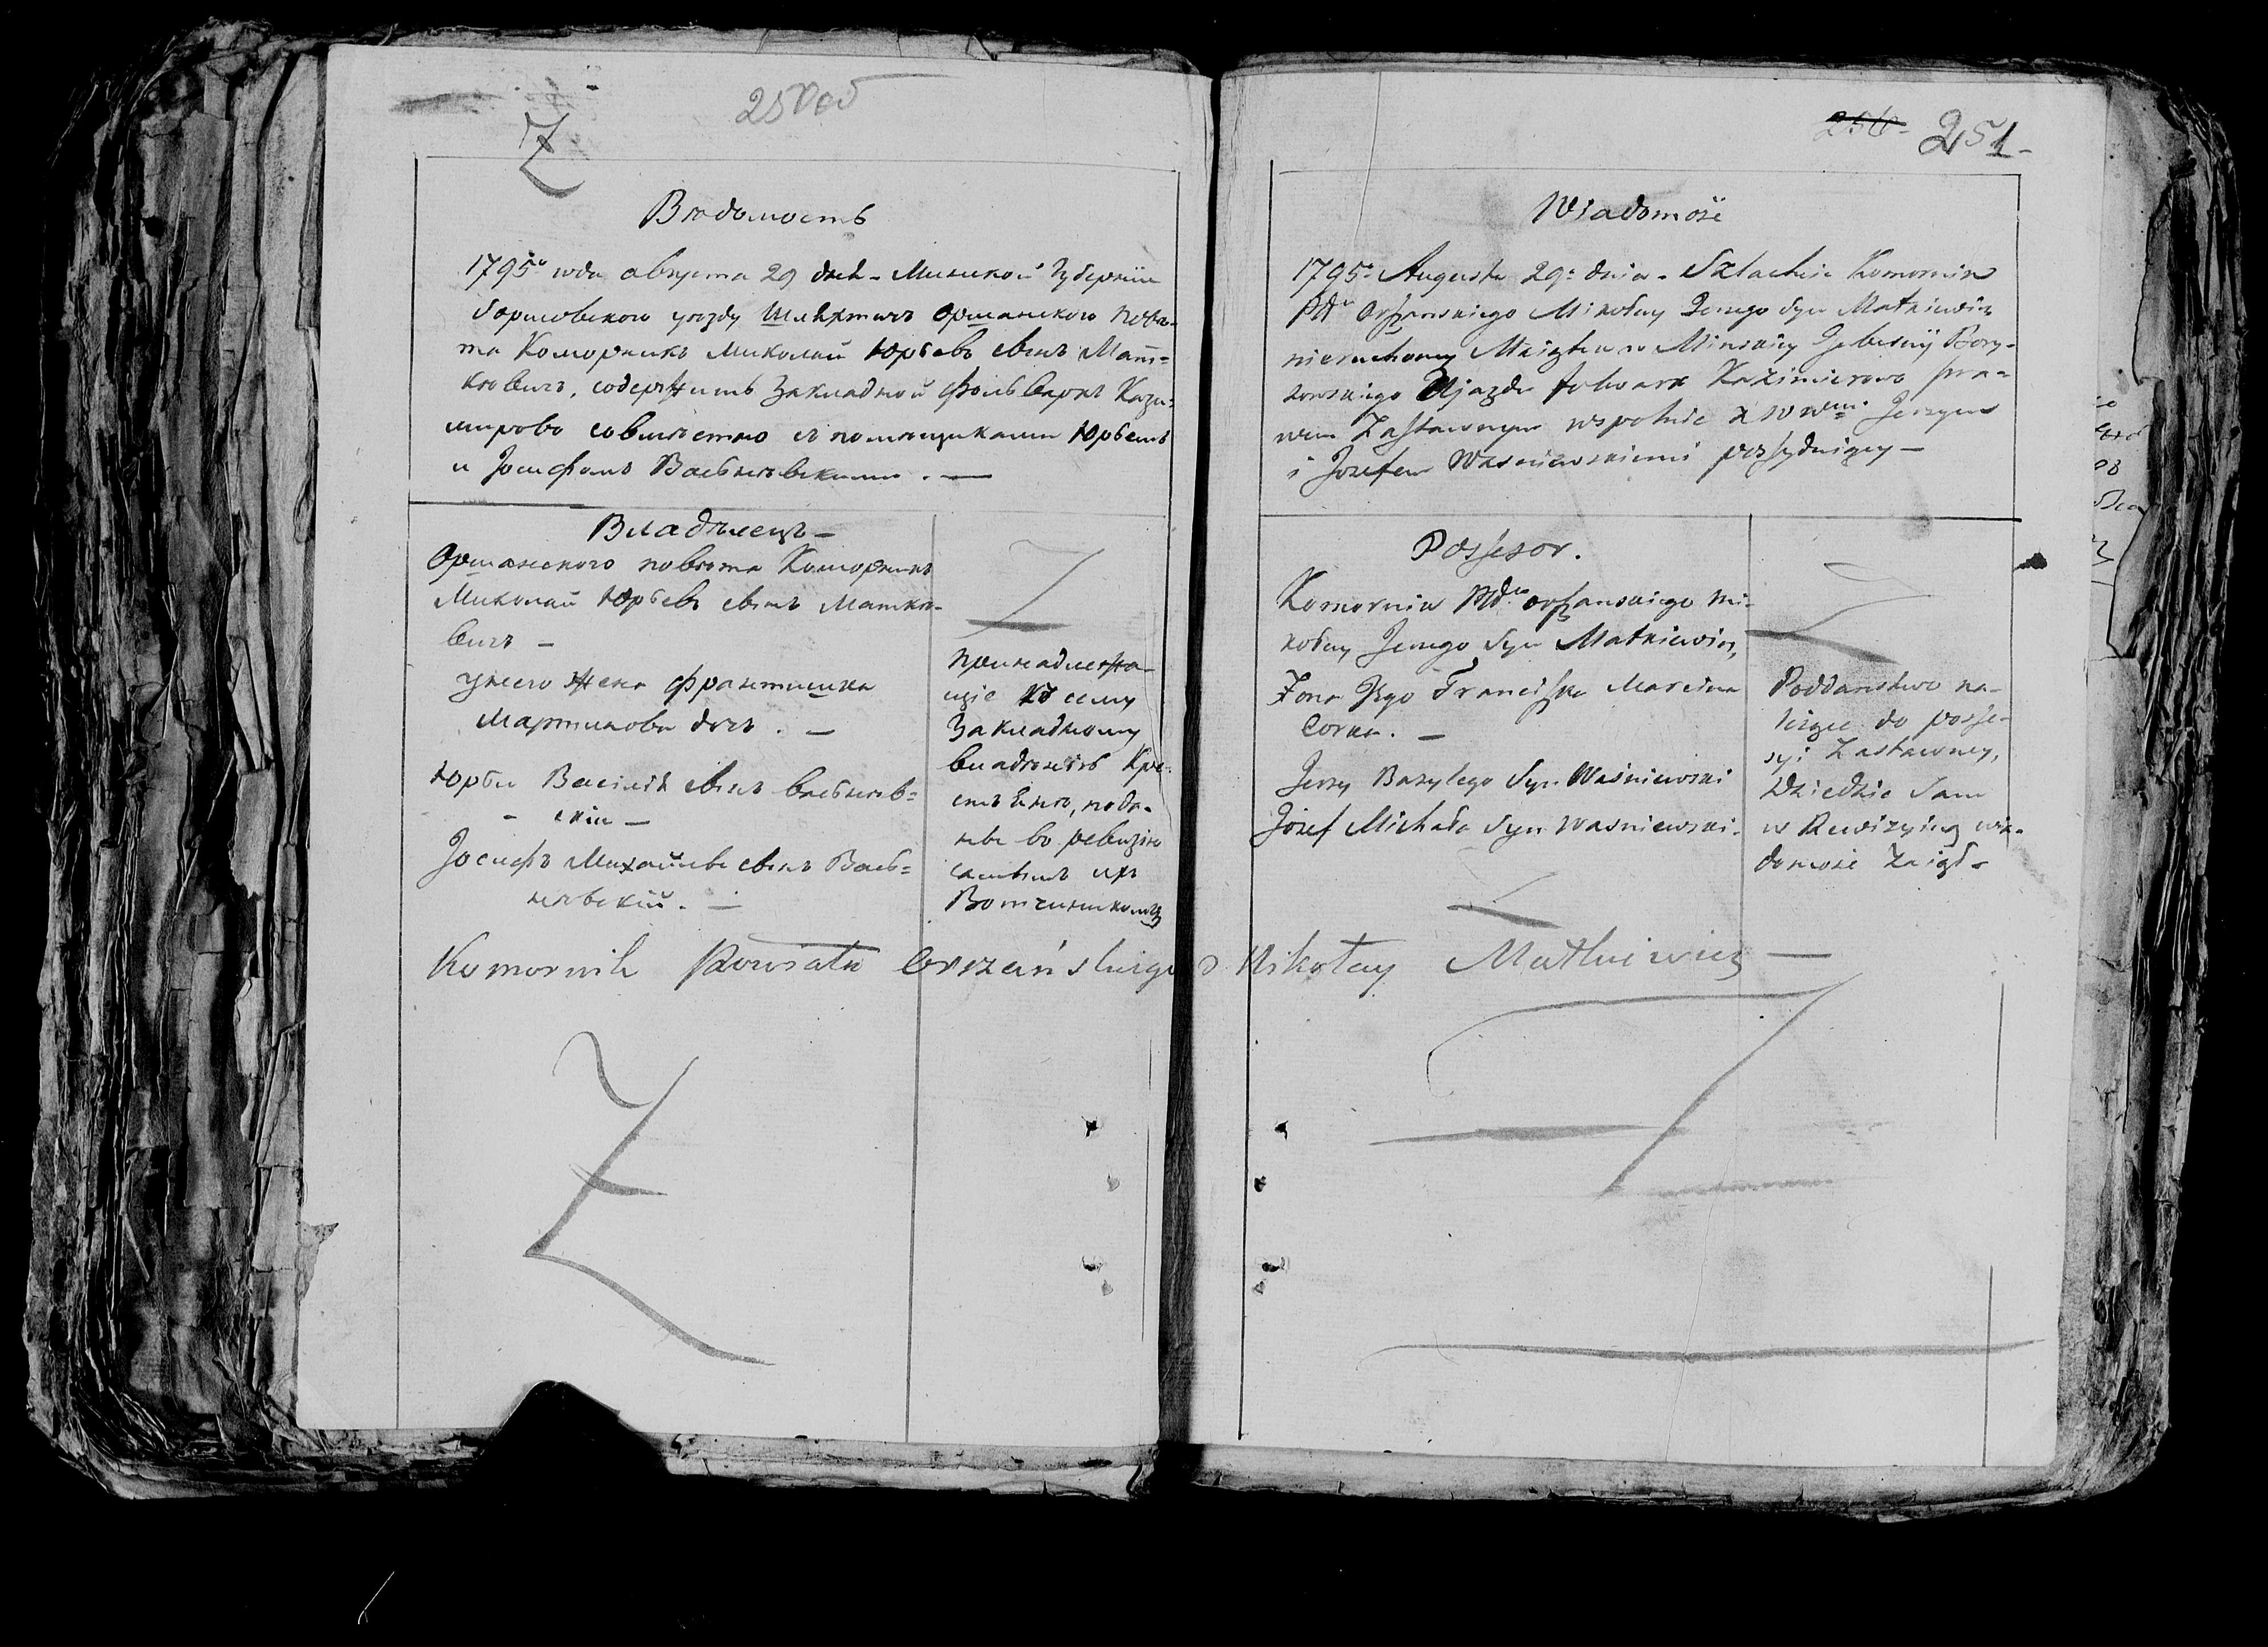 250об
Вѣдомость
1795го года августа 29 дня - Минской Губерніи
борисовского уѣзду Шляхтичъ Оршанского повѣ-
та Коморникъ Миколай Юрьевъ сынъ Мат-
кѣвичъ, содержитъ Закладной фольваркъ Кази-
мирово совмѣстно съ помещиками Юрьемъ
и Іосифомъ Васьнѣвскими. —
Владѣлецъ —
Оршанского повѣта Коморникъ
Миколай Юрьевъ сынъ Маткѣ-
вичъ —
у него жена франтишка
Мартинова дочь. —
Юрьи Василія сынъ Васьнѣв=
- скіи —
Іосифъ Михайлевъ сынъ Вась=
нѣвскій. —
принадлежа-
щіе къ сему
Закладному
владѣнію Кре-
стьяне, пода-
ны во ревизію
самымъ ихъ
Вотчинникомъ
Komornik Powiatu Orszańskiego Mikołay Matkiewicz —
250 251
Wiadomość
1795o Augusta 29o dnia - Szlachcic Komornik
Pttu Orszanskiego Mikołay Jerzego Syn Matkiewicz
nieruchomy Maiątku w Minskiey Guberniy Bory-
sowskiego Ujazdu folwark Kazimierowo pra-
wem Zastawnym wspolnie z W Wmi Jerzym
i Jozefem Wasniewskiemi possydujący —
Possesor.
Komornik Pttu orszanskiego Mi-
kołay Jerzego Syn Matkiewicz,
Żona Jego Franciszka Marcina
Corka. —
Jerzy Bazylego Syn Waśniewski
Józef Michała Syn Wasniewski.
Poddanstwo na-
leżące do posse-
syi Zastawney,
Dziedzic Sam
w Rewizyiną wia-
domość Zaiął -